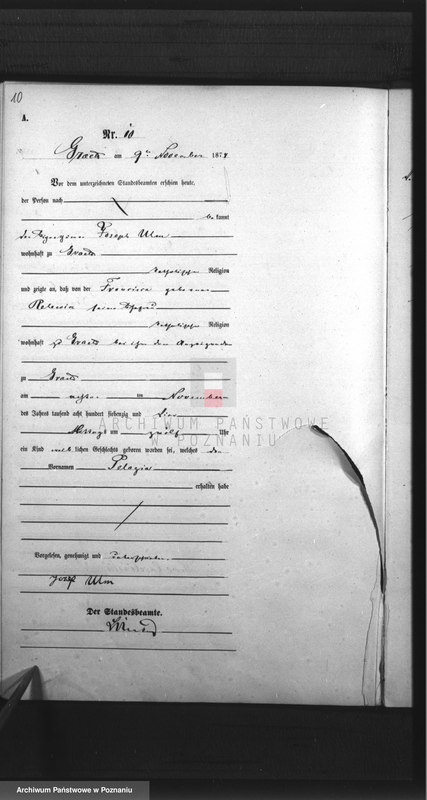 10
A.
Nr. 10
Graetz am 9ten November 1874
Vor dem unterzeichneten Standesbeamten erschien heute,
der Person nach
kannt
der Joseph Ulm
wohnhaft zu Graetz
katholischer Religion
und zeigte an, daß von der Francisca geborene
seine Ehefrau
katholischer Religion
wohnhaft zu Graetz bei ihm dem Anzeigenden
zu Graetz
am achten November
des Jahres tausend acht hundert siebenzig und vier
Mittags um zwölf Uhr
ein Kind weiblichen Geschlechts geboren worden sei, welches den
Vornamen Pelagia
erhalten habe
Vorgelesen, genehmigt und unterschrieben
Józef Ulm
Der Standesbeamte.
ARCHIWUM PAŃSTWOWE
W POZNANIU
Archiwum Państwowe w Poznaniu